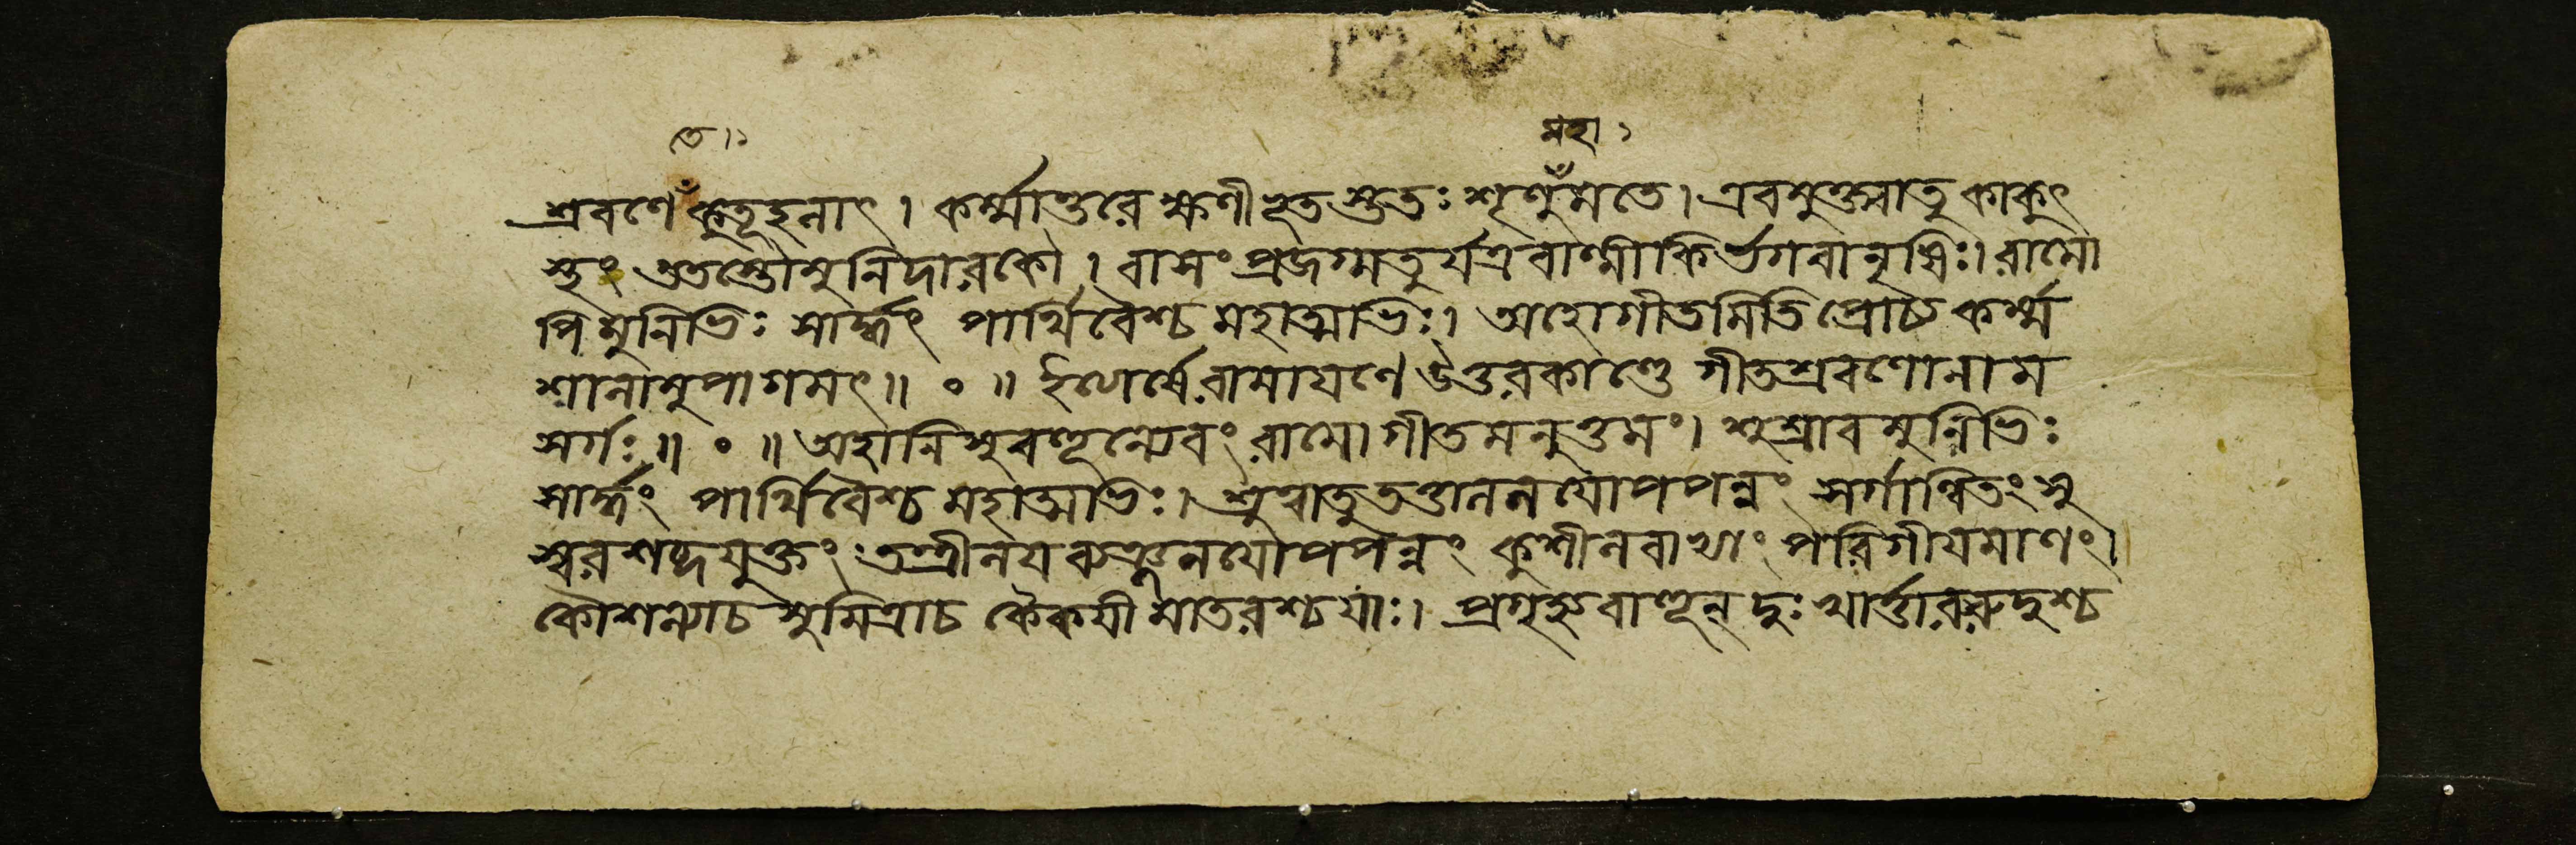 তে ১ মহা ১
শ্রবণে কুতূহলাৎ । কর্ম্মান্তরে ক্ষণীভূতস্ততঃ শৃণু মতে । এবমুক্ত্বাতু কাকুৎ
স্থং ততস্তৌ মুনিদারকৌ । বাসং প্রজগ্মতুর্যত্র বাল্মীকির্ভগবানৃষিঃ। রামো
পি মুনিভিঃ সার্দ্ধং পার্থিবৈশ্চ মহাত্মভিঃ। অহোগীতমিতিপ্রোচ্য কর্ম্ম
শালামুপাগমৎ॥ ॰ ॥ ইত্যার্ষে রামাযণে উত্তরকাণ্ডে গীতশ্রবণোনাম
সর্গঃ ॥ ॰ ॥ অহানিসুবহূন্যেবং রামো গীতমনুত্তমং। শুশ্রাব মুনিভিঃ
সার্দ্ধং পার্থিবৈশ্চ মহাত্মভিঃ। শ্রুত্বাতু তত্তাললযোপপন্নং সর্গান্বিতং সু
স্বরশব্দযুক্তং তন্ত্রীলয ব্যঞ্জনযোপপন্নং কুশীলবাভ্যাং পরিগীযমাণং।
কৌশল্যাচ সুমিত্রাচ কৈকযী মাতরশ্চ যাঃ। প্রগৃহ্য বাহূন্ দুঃখার্ত্তা রুরুদুশ্চ